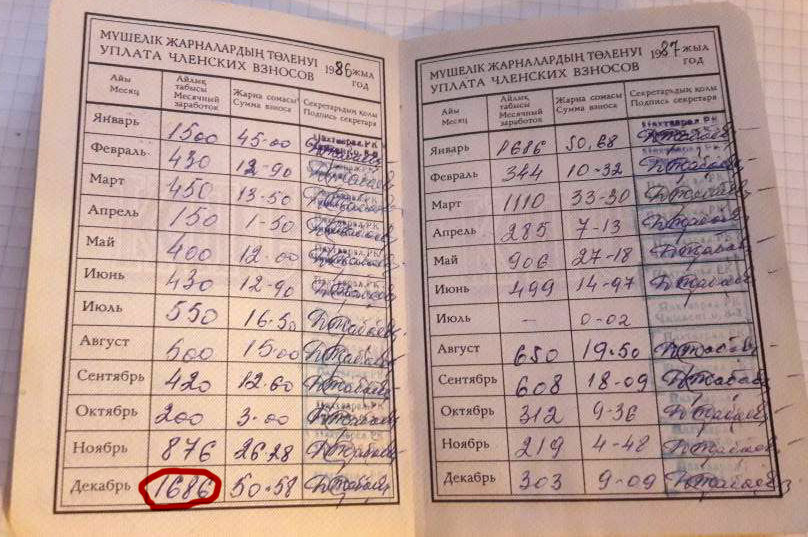 МҮШЕЛІК ЖАРНАЛАРДЫҢ ТӨЛЕНУІ 1986 ЖЫЛ
УПЛАТА ЧЛЕНСКИХ ВЗНОСОВ ГОД
Айы Месяц Айлық табысы Месячный заработок Жарна сомасы Сумма взноса Секретардың қолы Подпись секретаря
Январь 1500 45-00
Февраль 430 12-90
Март 450 13-50
Апрель 150 1-50
Май 400 12-00
Июнь 430 12-90
Июль 550 16-50
Август 500 15-00
Сентябрь 420 12-60
Октябрь 200 3-00
Ноябрь 876 26-28
Декабрь 1686 50-58
МҮШЕЛІК ЖАРНАЛАРДЫҢ ТӨЛЕНУІ 1987 ЖЫЛ
УПЛАТА ЧЛЕНСКИХ ВЗНОСОВ ГОД
Айы Месяц Айлық табысы Месячный заработок Жарна сомасы Сумма взноса Секретардың қолы Подпись секретаря
Январь 1686 50,68
Февраль 344 10-32
Март 1110 33-30
Апрель 285 7-13
Май 906 27-18
Июнь 499 14-97
Июль — 0-02
Август 650 19-50
Сентябрь 608 18-09
Октябрь 312 9-36
Ноябрь 219 4-48
Декабрь 303 9-09